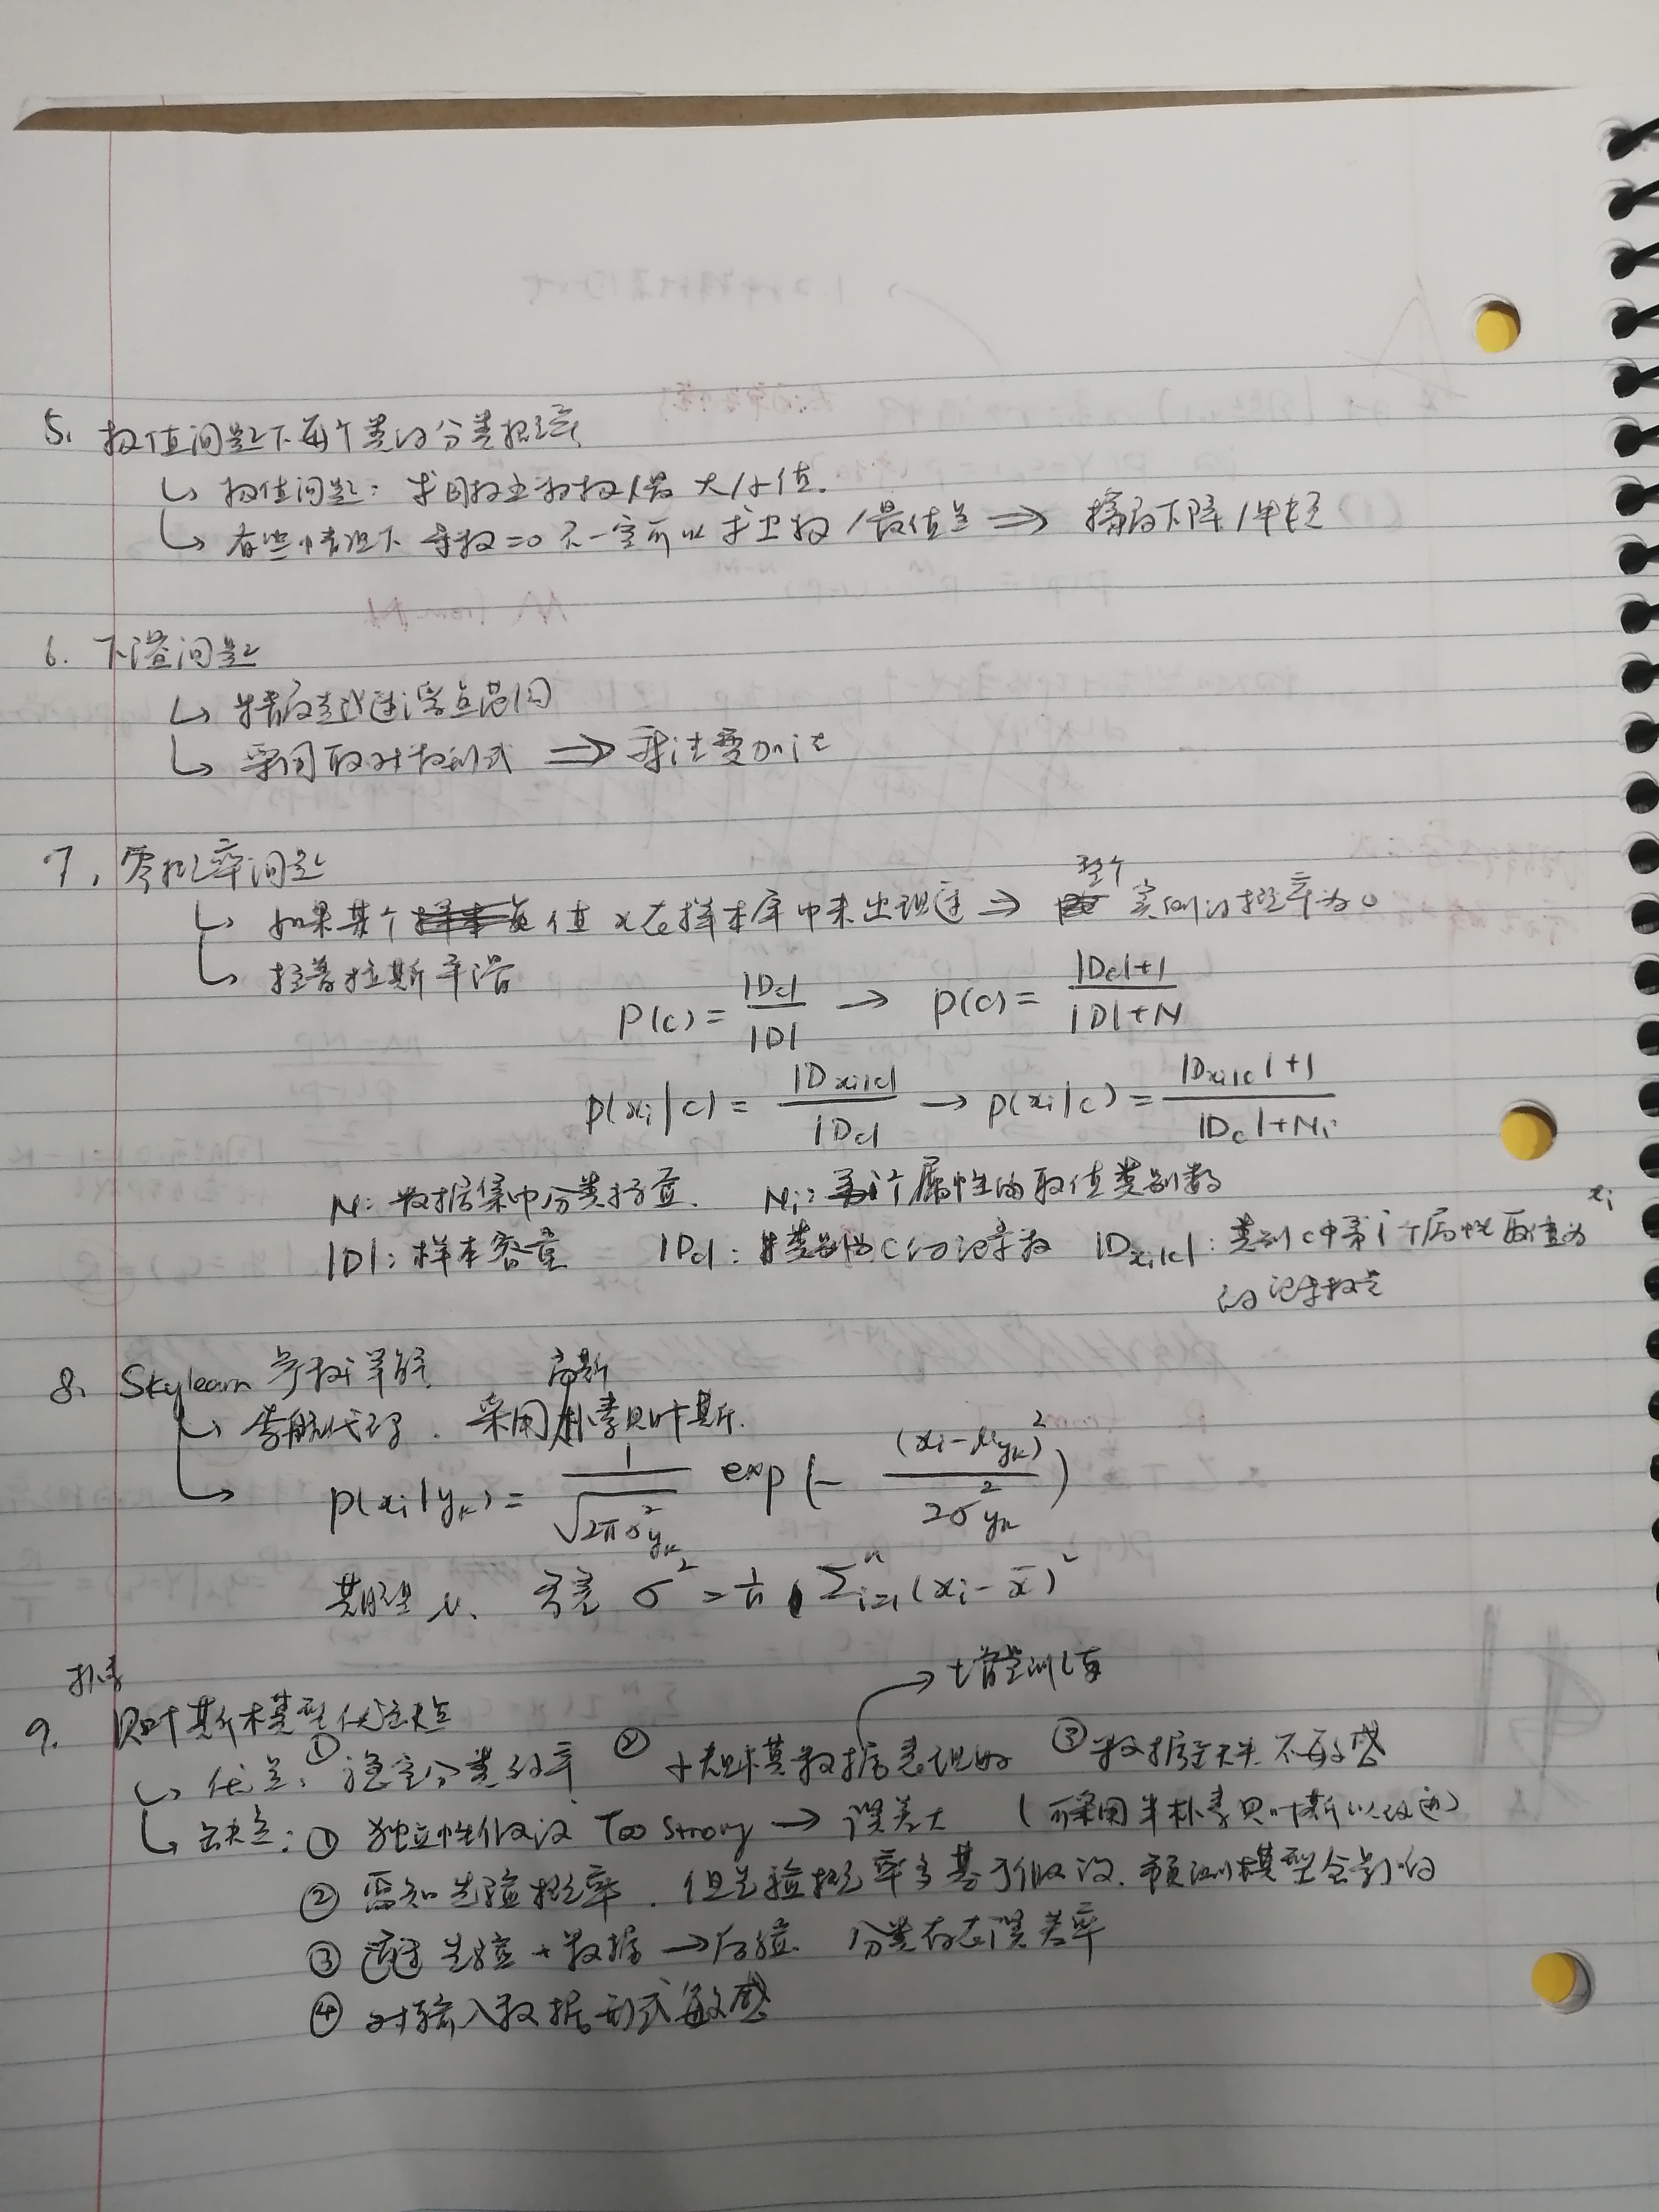 5. 极值问题下每个类的分类概率
↳ 极值问题: 求目标函数极/最大/小值.
↳ 有些情况下 导数=0 不一定可以求出极/最值点 ⇒ 梯度下降/牛顿
6. 下溢问题
↳ 精度超过浮点范围
↳ 采用取对数形式 ⇒ 乘法变加法
7. 零概率问题
↳ 如果某个值 x 在样本库中未出现过 ⇒ 整个实例的概率为0
↳ 拉普拉斯平滑
P(c) = |Dc| / |D| → P(c) = |Dc|+1 / |D|+N
P(xi|c) = |Dxi|c| / |Dc| → P(xi|c) = |Dxi|c|+1 / |Dc|+Ni
N: 数据集中分类数量. Ni: 第i个属性的取值类别数
|D|: 样本容量 |Dc|: 类别为C的记录数 |Dxi|c|: 类别c中第i个属性取值为xi
的记录数
8. Skylearn 参数详解
↳ 李航代码. 采用高斯朴素贝叶斯.
↳ P(xi|yk) = 1/√(2πσ²yk) exp(- (xi-μyk)² / 2σ²yk)
期望 μ. 方差 σ² = 1/n Σⁿi=1 (xi - x̄)²
9. 朴素贝叶斯模型优缺点
→ 增量训练
↳ 优点: ① 稳定分类效率 ② 小规模数据表现好 ③ 数据缺失不敏感
↳ 缺点: ① 独立性假设 Too Strong → 误差大 (可采用半朴素贝叶斯以改进)
② 需知先验概率. 但先验概率多基于假设. 预测模型会影响
③ 通过先验+数据 → 后验. 分类存在误差率
④ 对输入数据形式敏感